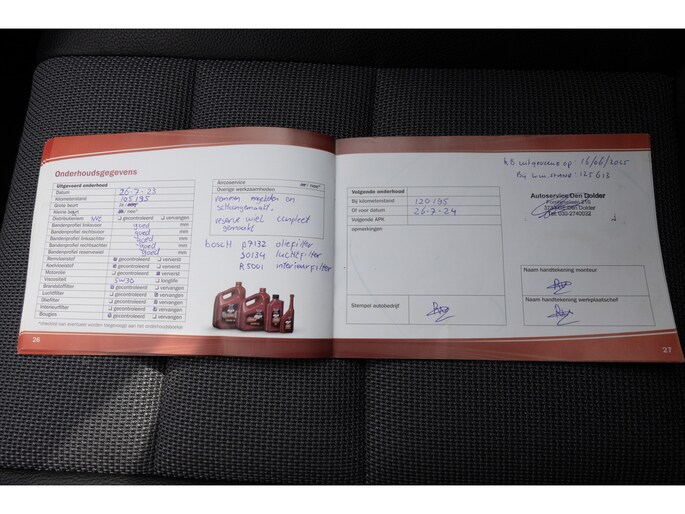 Onderhoudsgegevens
Uitgevoerd onderhoud
Datum 26-7-23
Kilometerstand 105195
Grote beurt
Kleine beurt
Distributieriem nvt gecontroleerd vervangen
Bandenprofiel linksvoor goed mm
Bandenprofiel rechtsvoor goed mm
Bandenprofiel linksachter goed mm
Bandenprofiel rechtsachter goed mm
Bandenprofiel reservewiel goed mm
Remvloeistof gecontroleerd ververst
Koelvloeistof gecontroleerd ververst
Motorolie gecontroleerd ververst
Viscositeit 5W30 longlife
Brandstoffilter gecontroleerd vervangen
Luchtfilter gecontroleerd vervangen
Oliefilter gecontroleerd vervangen
Interieurfilter gecontroleerd vervangen
Bougies gecontroleerd vervangen
26
Aircoservice
Overige werkzaamheden
remmen nagekeken en
schoongemaakt.
reserve wiel compleet
gemaakt
bosch P7132 oliefilter
S0134 luchtfilter
R5001 interieurfilter
KB uitgegeven op: 16/06/2025
Bij km.stand: 125613
Volgende onderhoud
Bij kilometerstand 120195
Of voor datum 26-7-24
Volgende APK
opmerkingen
Autoservice Den Dolder
Den Dolder
Tel. 030-2740032
Naam handtekening monteur
Stempel autobedrijf
Naam handtekening werkplaatschef
27